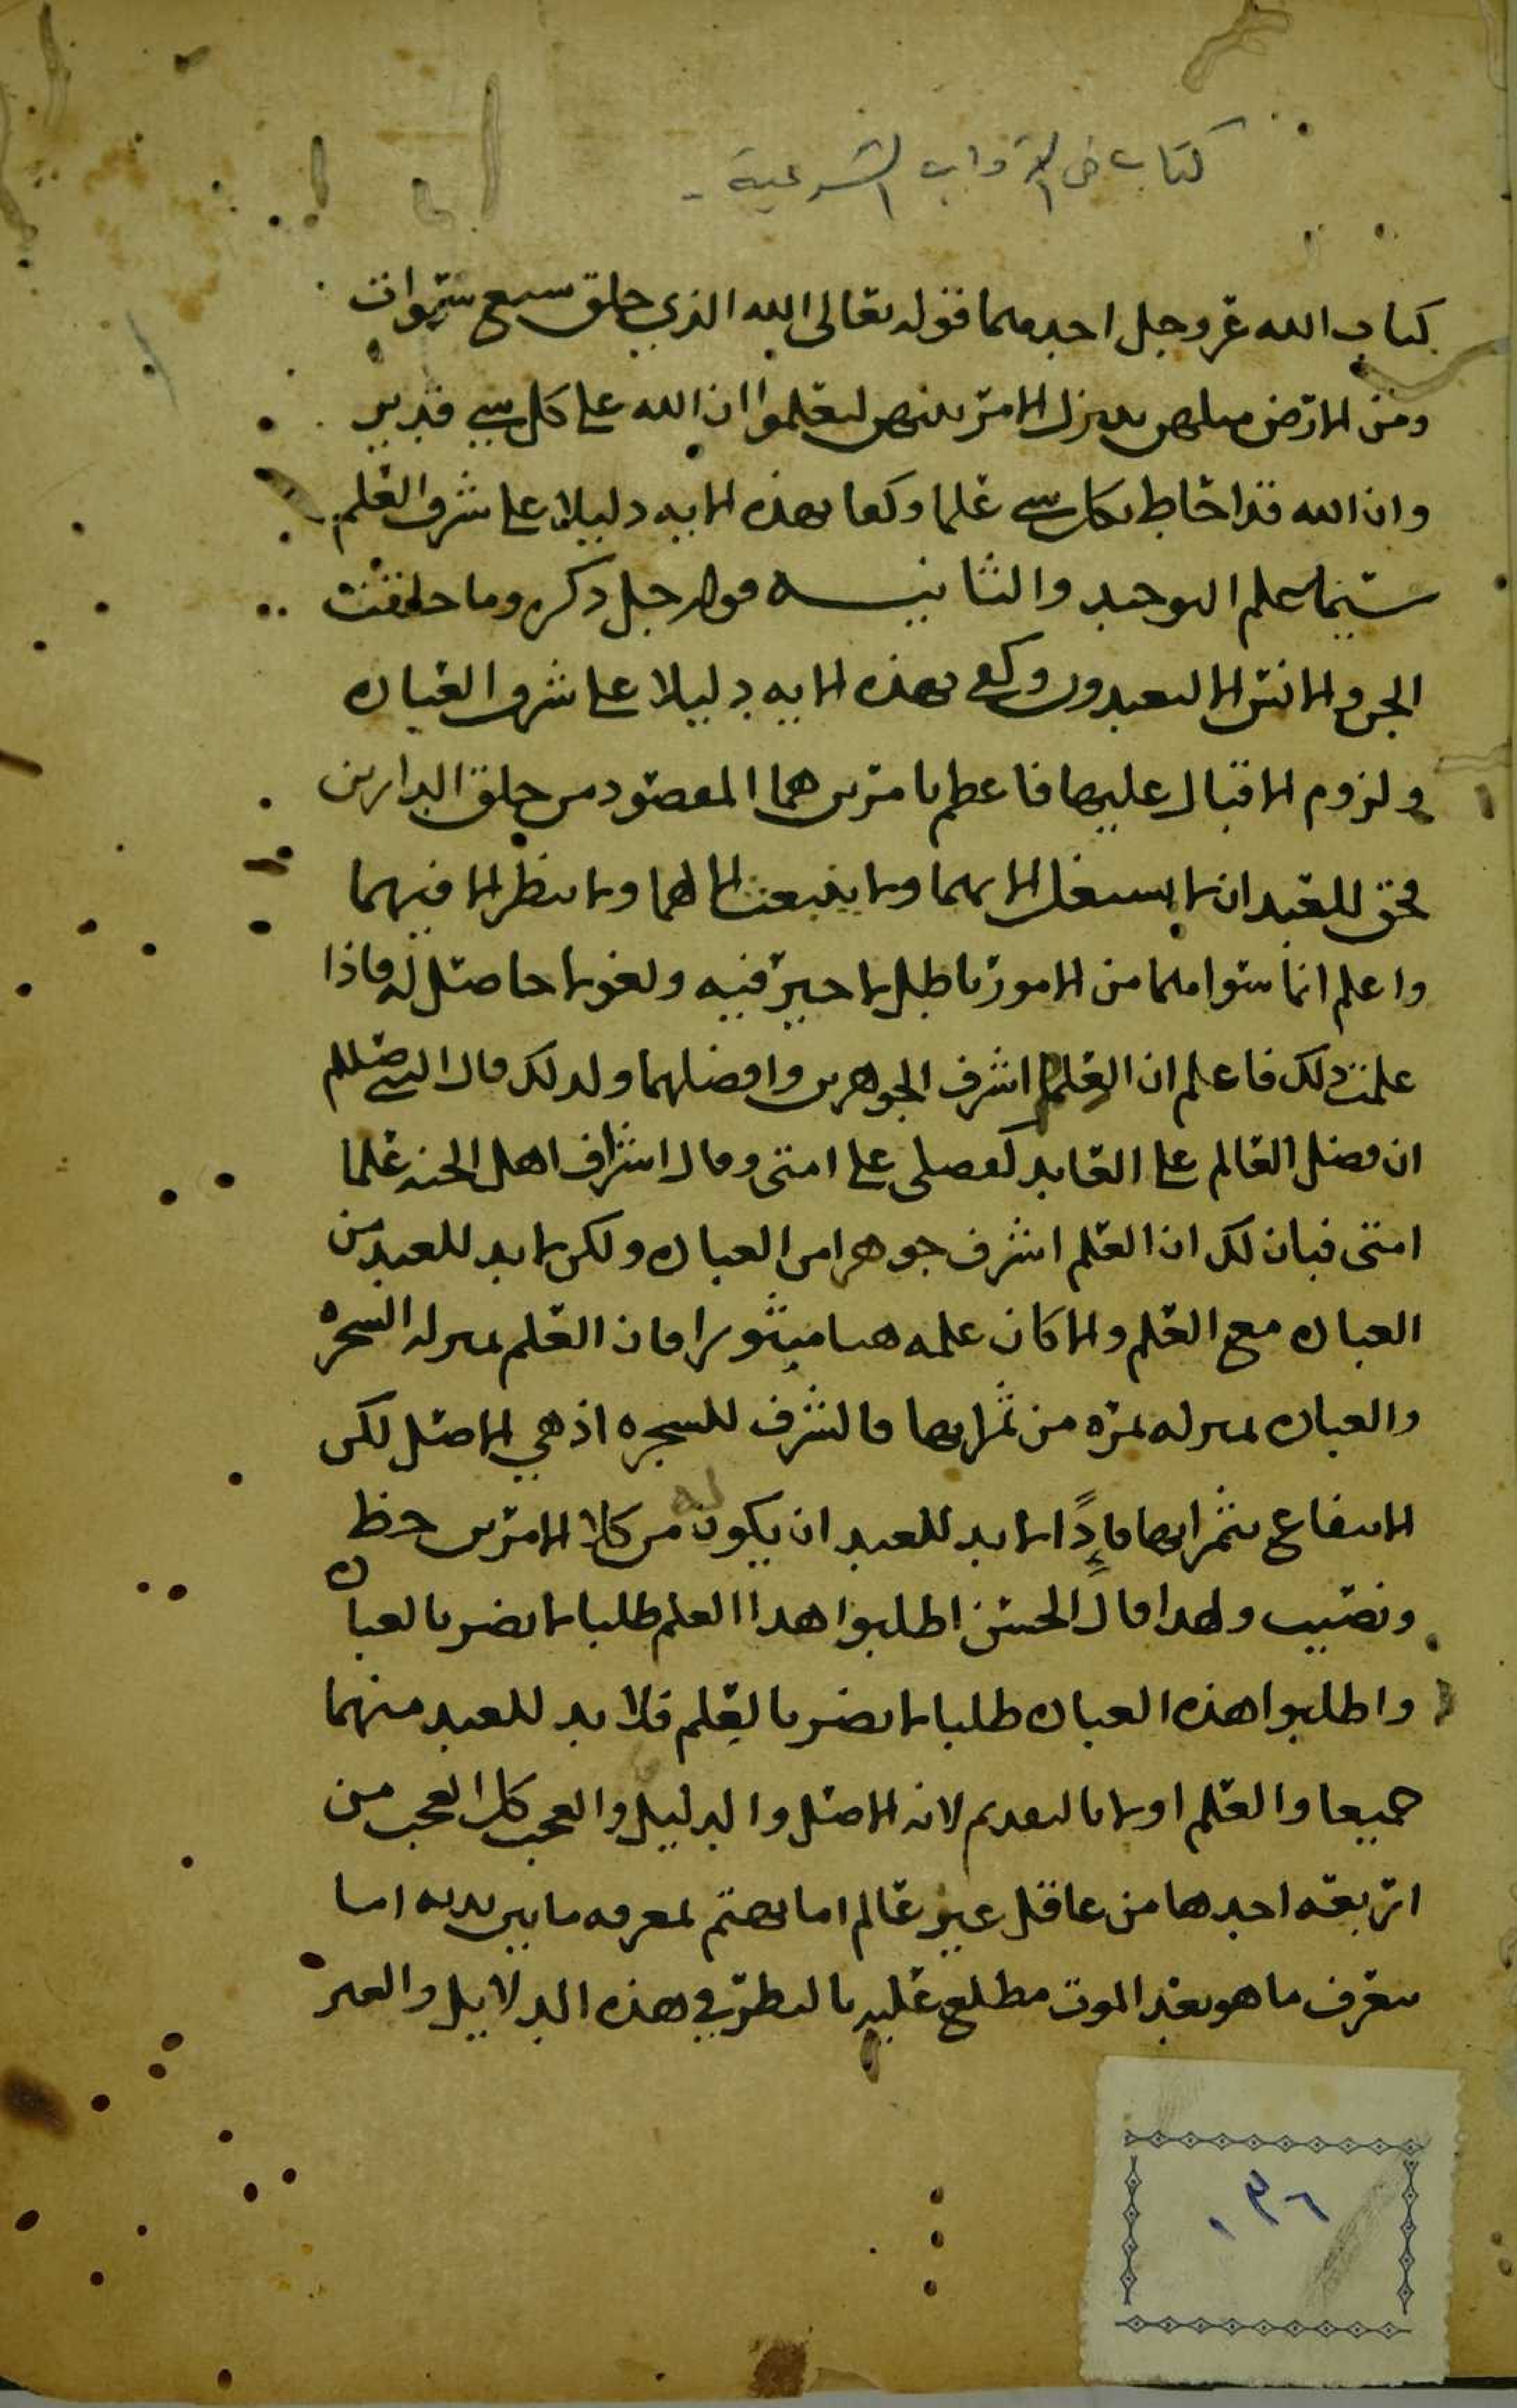 كتاب في الآداب الشرعية -
كتاب الله عز وجل احدهما قوله تعالى الله الذي خلق سبع سموات
ومن الارض مثلهن يتنزل الامر بينهن لتعلموا ان الله على كل شي قدير
وان الله قد احاط بكل شي علما وكفا بهذه الايه دليلا على شرف العلم
سيما علم التوحيد والثانيه قوله جل ذكره وما خلقت
الجن والانس الا ليعبدون وكفى بهذه الايه دليلا على شرف العباده
ولزوم الاقبال عليها فاعظم بامرين هما المقصود من خلق الدارين
فحق للعبد ان لا يشتغل الا بهما ولا ينبعث الا لهما ولا ينظر الا فيهما
واعلم انما سواهما من الامور باطل لا خير فيه ولغو لا حاصل له فاذا
علمت ذلك فاعلم ان العلم اشرف الجوهرين وافضلهما ولذلك قال النبي صللم
ان فضل العالم على العابد كفضلي على امتي وقال اشراف اهل الجنه علما
امتي فبان لك ان العلم اشرف جوهرا من العباده ولكن لا بد للعبد من
العباده مع العلم والا كان علمه هبا منثورا فان العلم بمنزله الشجره
والعباده بمنزله ثمره من ثمراتها فالشرف للشجره اذ هي الاصل لكن
الانتفاع بثمراتها فإذًا لا بد للعبد ان يكون له من كلا الامرين حظ
ونصيب ولهذا قال الحسن اطلبوا هذا العلم طلبا لا يضر بالعباده
واطلبوا هذه العباده طلبا لا يضر بالعلم فلا بد للعبد منهما
جميعا والعلم اولا بالتقديم لانه الاصل والدليل والعجب كل العجب من
اربعه احدها من عاقل غير عالم اما يهتم بمعرفه ما بين يديه اما
يتعرف ما هو بعد الموت مطلع عليه بالنظر في هذه الدلايل والعبر
٠٣٦